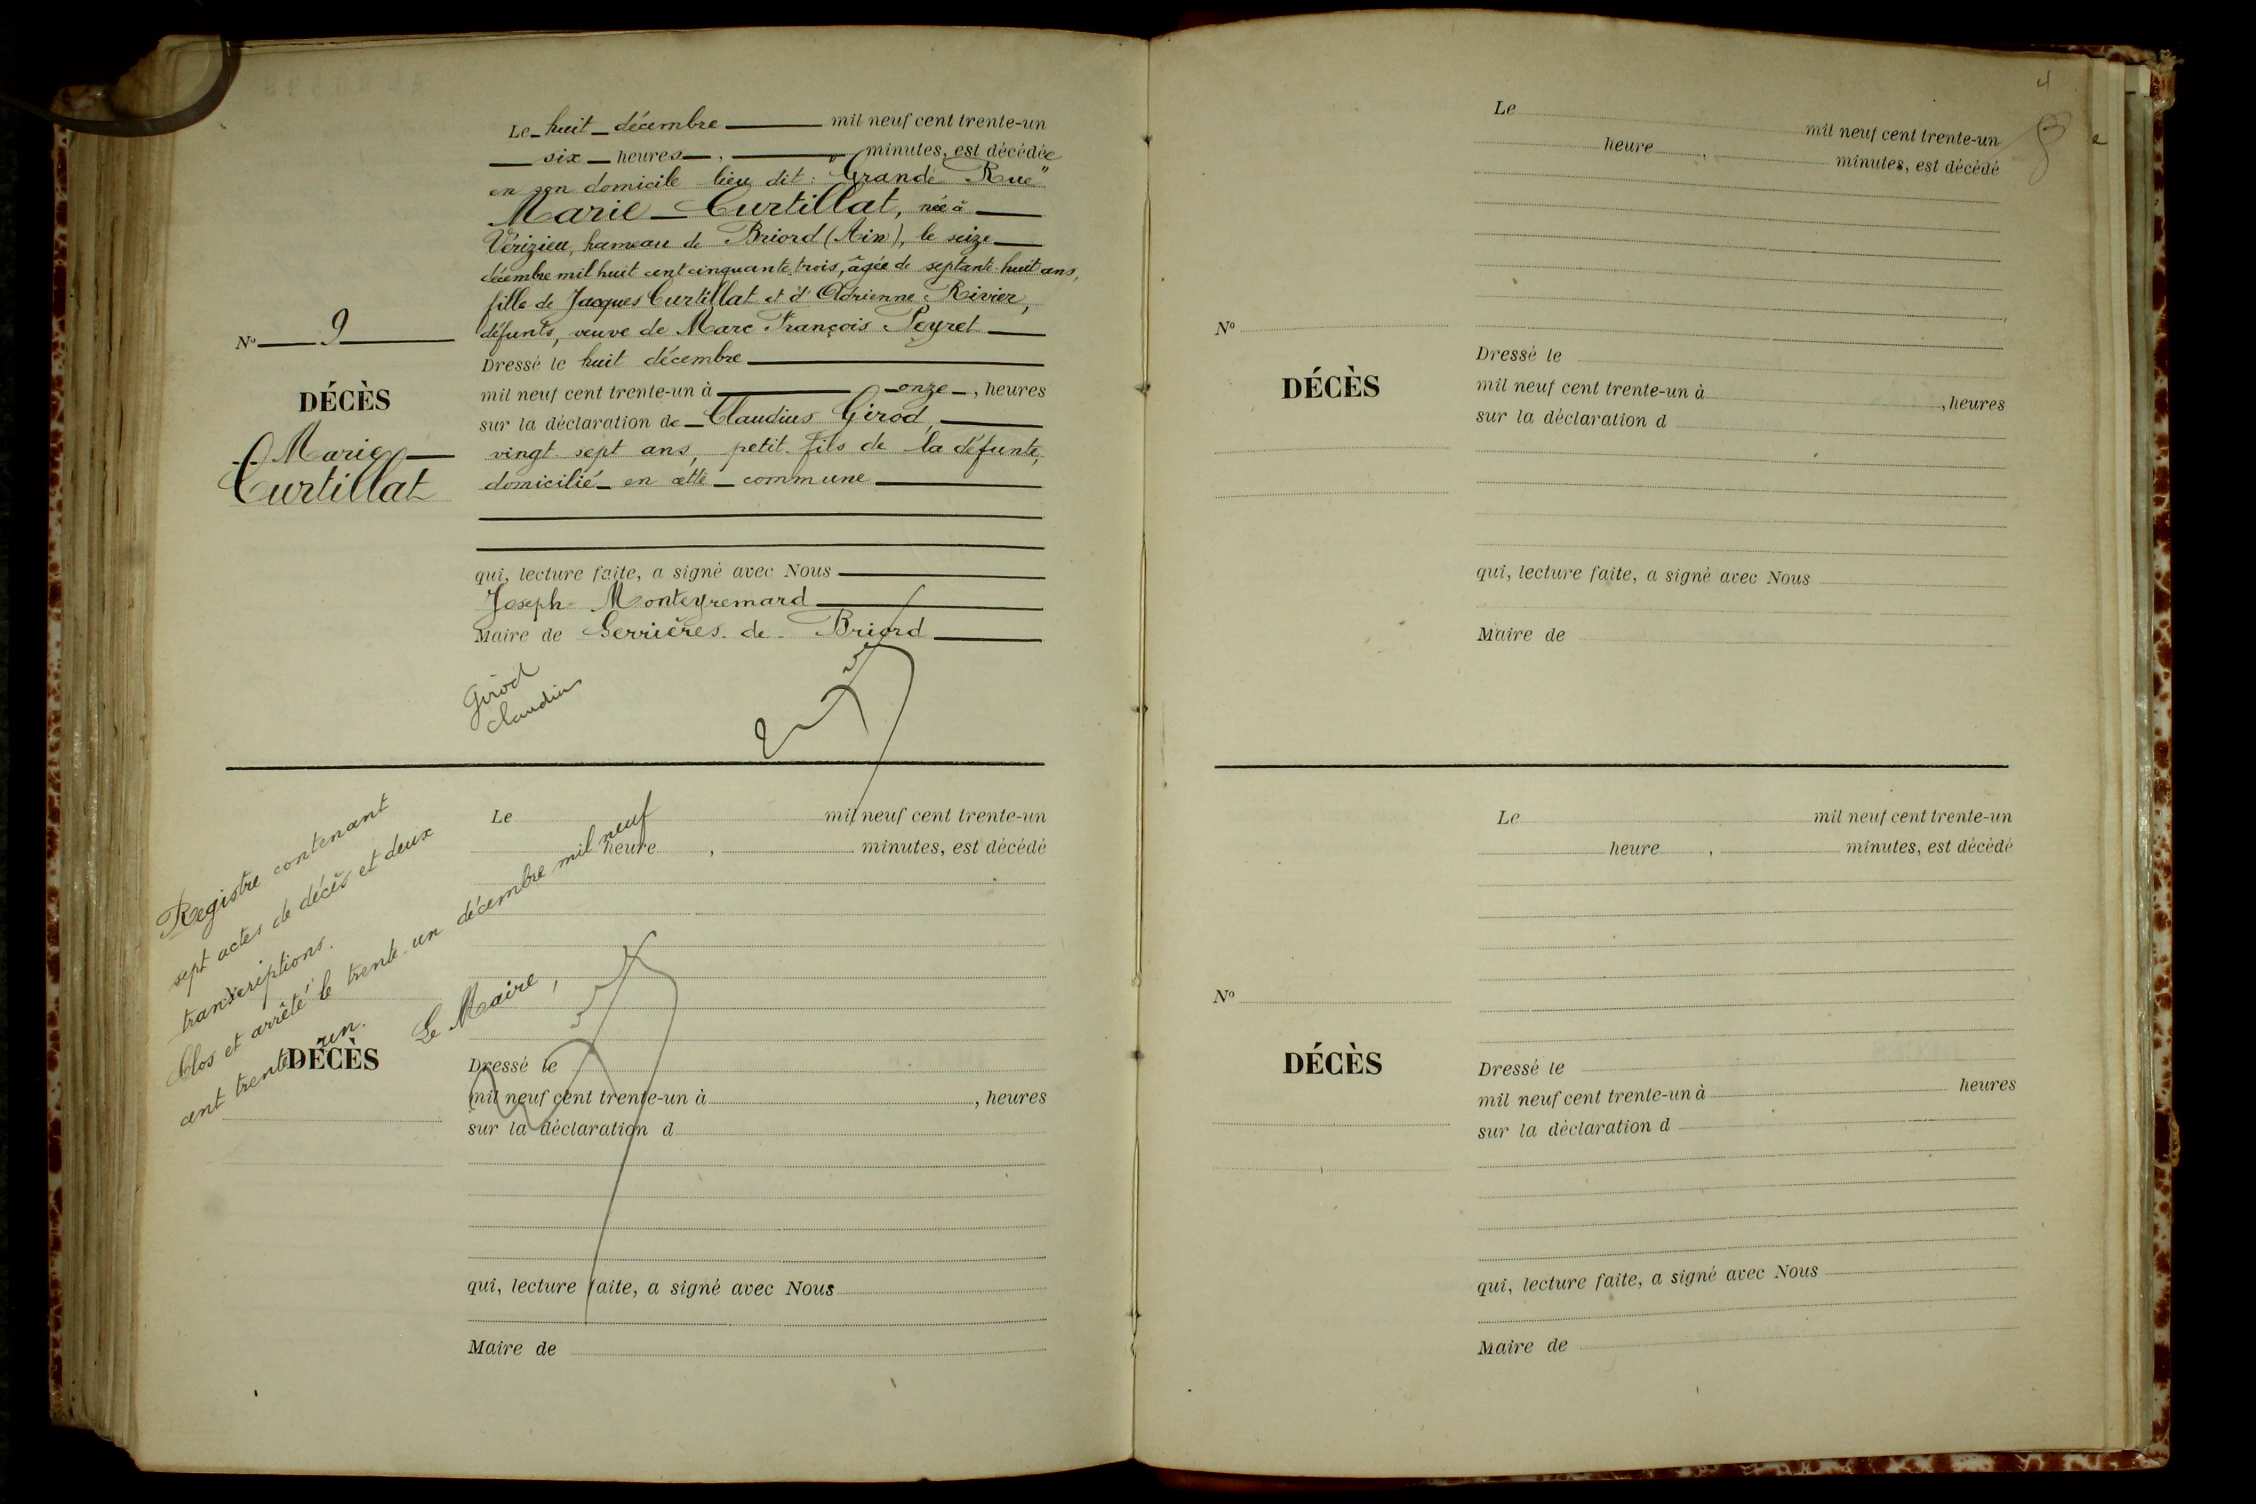 Le huit décembre mil neuf cent trente-un
six heures, minutes, est décédée
en son domicile lieu dit: "Grande Rue"
Marie Curtillat, née à
Vérizieu, hameau de Briord (Ain), le seize
décembre mil huit cent cinquante trois, âgée de septante-huit ans,
fille de Jacques Curtillat et d'Adrienne Rivier,
défunts, veuve de Marc François Peyret
Nº 9
DÉCÈS
Marie
Curtillat
Dressé le huit décembre
mil neuf cent trente-un à onze, heures
sur la déclaration de Claudius Girod,
vingt sept ans, petit-fils de la défunte,
domicilié en cette commune
qui, lecture faite, a signé avec Nous
Joseph Monteyremard
Maire de Serrières-de-Briord
Girod
Claudius
Registre contenant
sept actes de décès et deux
transcriptions.
Clos et arrêté le trente-un décembre mil neuf
cent trente-un.
Le Maire,
Le mil neuf cent trente-un
heure, minutes, est décédé
DÉCÈS
Dressé le
mil neuf cent trente-un à , heures
sur la déclaration d
qui, lecture faite, a signé avec Nous
Maire de
4
8
e
Le mil neuf cent trente-un
heure, minutes, est décédé
Nº
DÉCÈS
Dressé le
mil neuf cent trente-un à , heures
sur la déclaration d
qui, lecture faite, a signé avec Nous
Maire de
Le mil neuf cent trente-un
heure, minutes, est décédé
Nº
DÉCÈS
Dressé le
mil neuf cent trente-un à heures
sur la déclaration d
qui, lecture faite, a signé avec Nous
Maire de